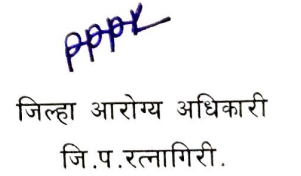 जिल्हा आरोग्य अधिकारी
जि.प.रत्नागिरी.